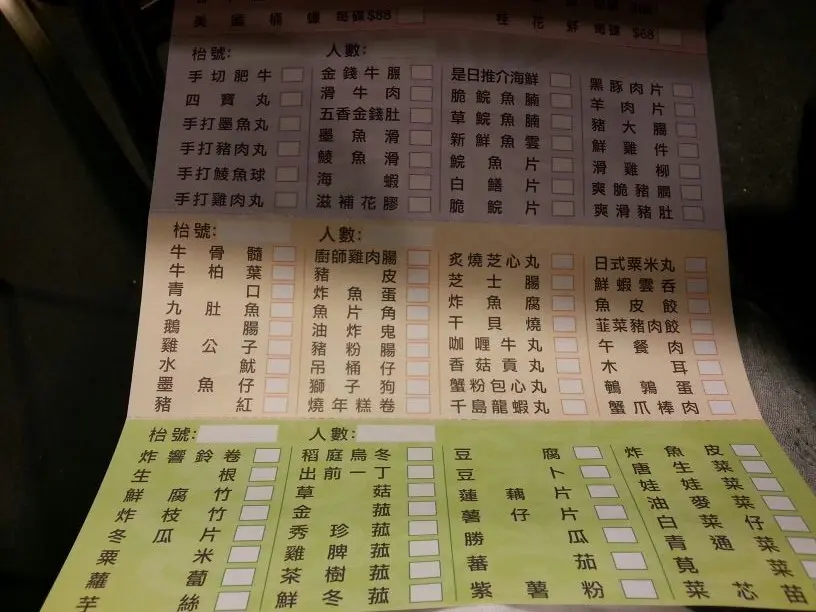 美國桶蠔 每碟$88
桂花蚌 每碟 $68
枱號:
人數:
手切肥牛
四寶丸
手打墨魚丸
手打豬肉丸
手打鯪魚球
手打雞肉丸
金錢牛𦟌
滑牛肉
五香金錢肚
墨魚滑
鯪魚滑
海蝦
滋補花膠
是日推介海鮮
脆鯇魚腩
草鯇魚腩
新鮮魚雲
鯇魚片
白鱔片
脆鯇片
黑豚肉片
羊肉片
豬大腸
鮮雞件
滑雞柳
爽脆豬膶
爽滑豬肚
枱號:
人數:
牛骨髓
牛柏葉
青口
九肚魚
鵝腸
雞公子
水魷
墨魚仔
豬紅
廚師雞肉腸
豬皮
炸魚蛋
魚片角
油炸鬼
豬粉腸
吊桶仔
獅子狗
燒年糕卷
炙燒芝心丸
芝士腸
炸魚腐
干貝燒
咖喱牛丸
香菇貢丸
蟹粉包心丸
千島龍蝦丸
日式粟米丸
鮮蝦雲吞
魚皮餃
韮菜豬肉餃
午餐肉
木耳
鵪鶉蛋
蟹爪棒肉
枱號:
人數:
炸響鈴卷
生根
鮮腐竹
炸枝竹
冬瓜片
粟米
蘿蔔
芋絲
稻庭烏冬
出前一丁
草菇
金菰
秀珍菰
雞脾菰
茶樹菰
鮮冬菰
豆腐
豆卜
蓮藕片
薯仔片
勝瓜
蕃茄
紫薯粉
炸魚皮
唐生菜
娃娃菜
油麥菜
白菜仔
青通菜
莧菜
菜芯苗